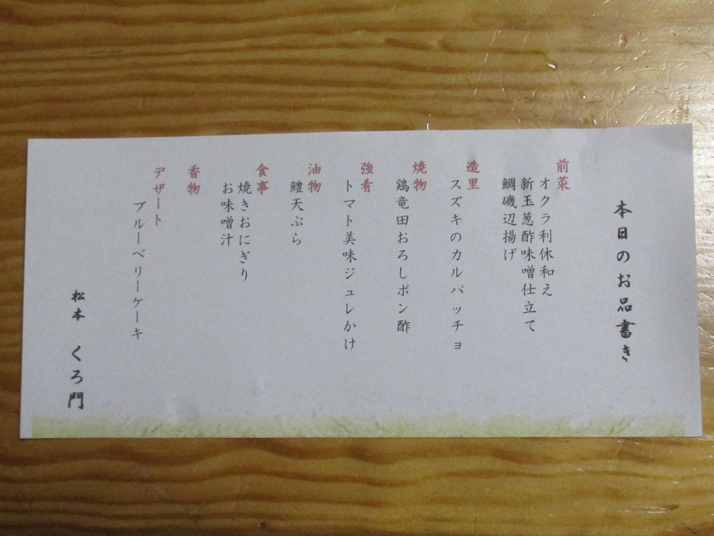 本日のお品書き
前菜
オクラ利休和え
新玉葱酢味噌仕立て
鯛磯辺揚げ
造里
スズキのカルパッチョ
焼物
鶏竜田おろしポン酢
強肴
トマト美味ジュレかけ
油物
鱧天ぷら
食事
焼きおにぎり
お味噌汁
香物
デザート
ブルーベリーケーキ
松本 くろ門